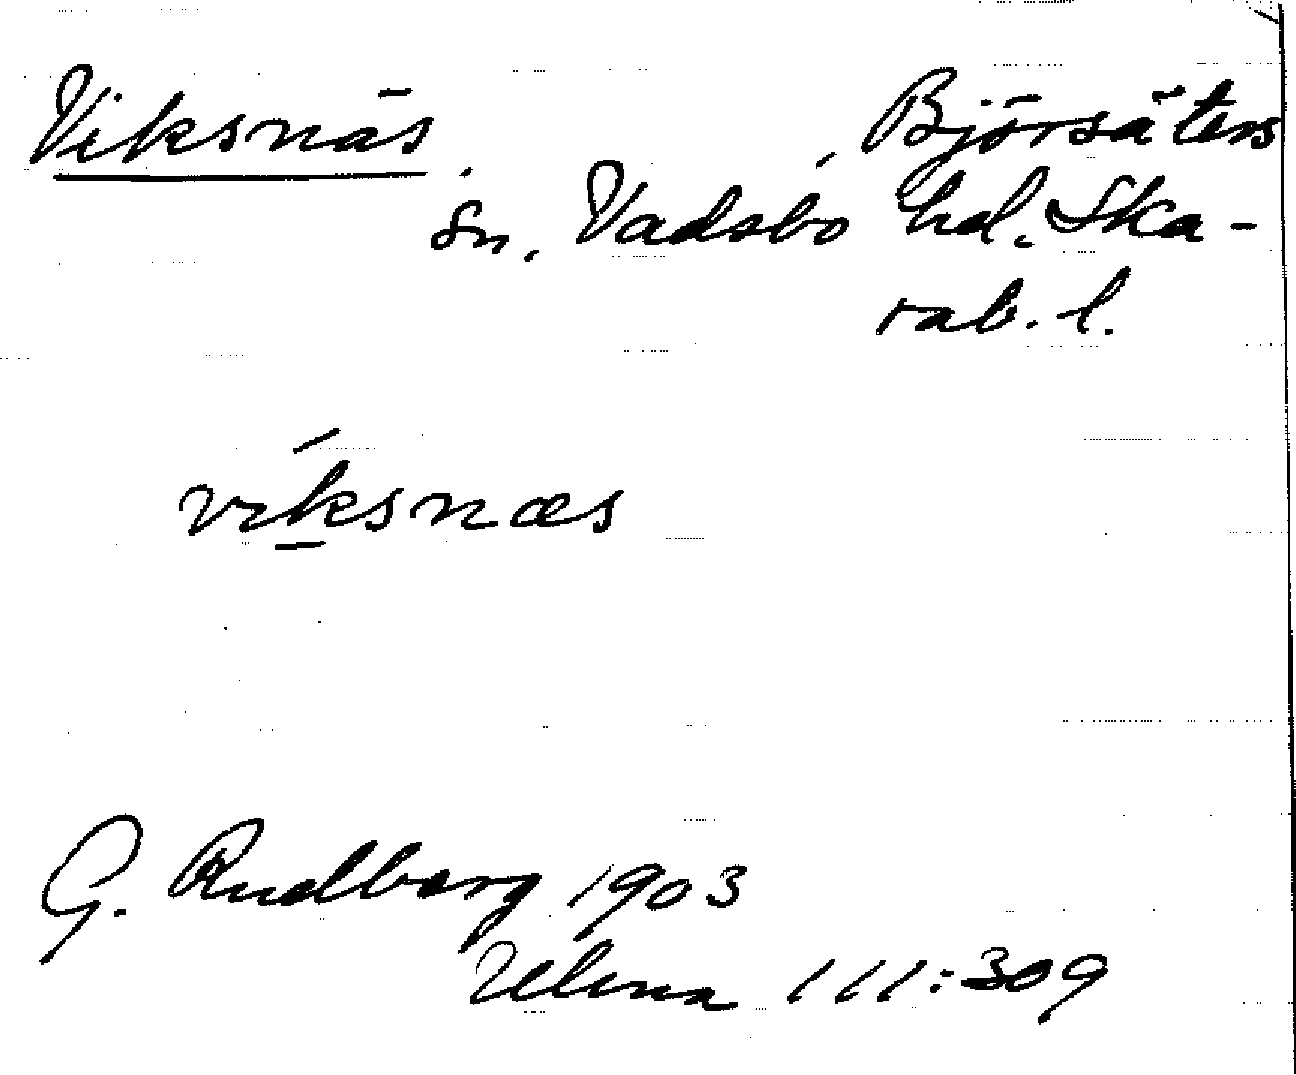 Viksnäs, Björsäters
sn, Vadsbo hd. Ska-
rab. l.
viksnæs
G. Rudberg 1903
111:309